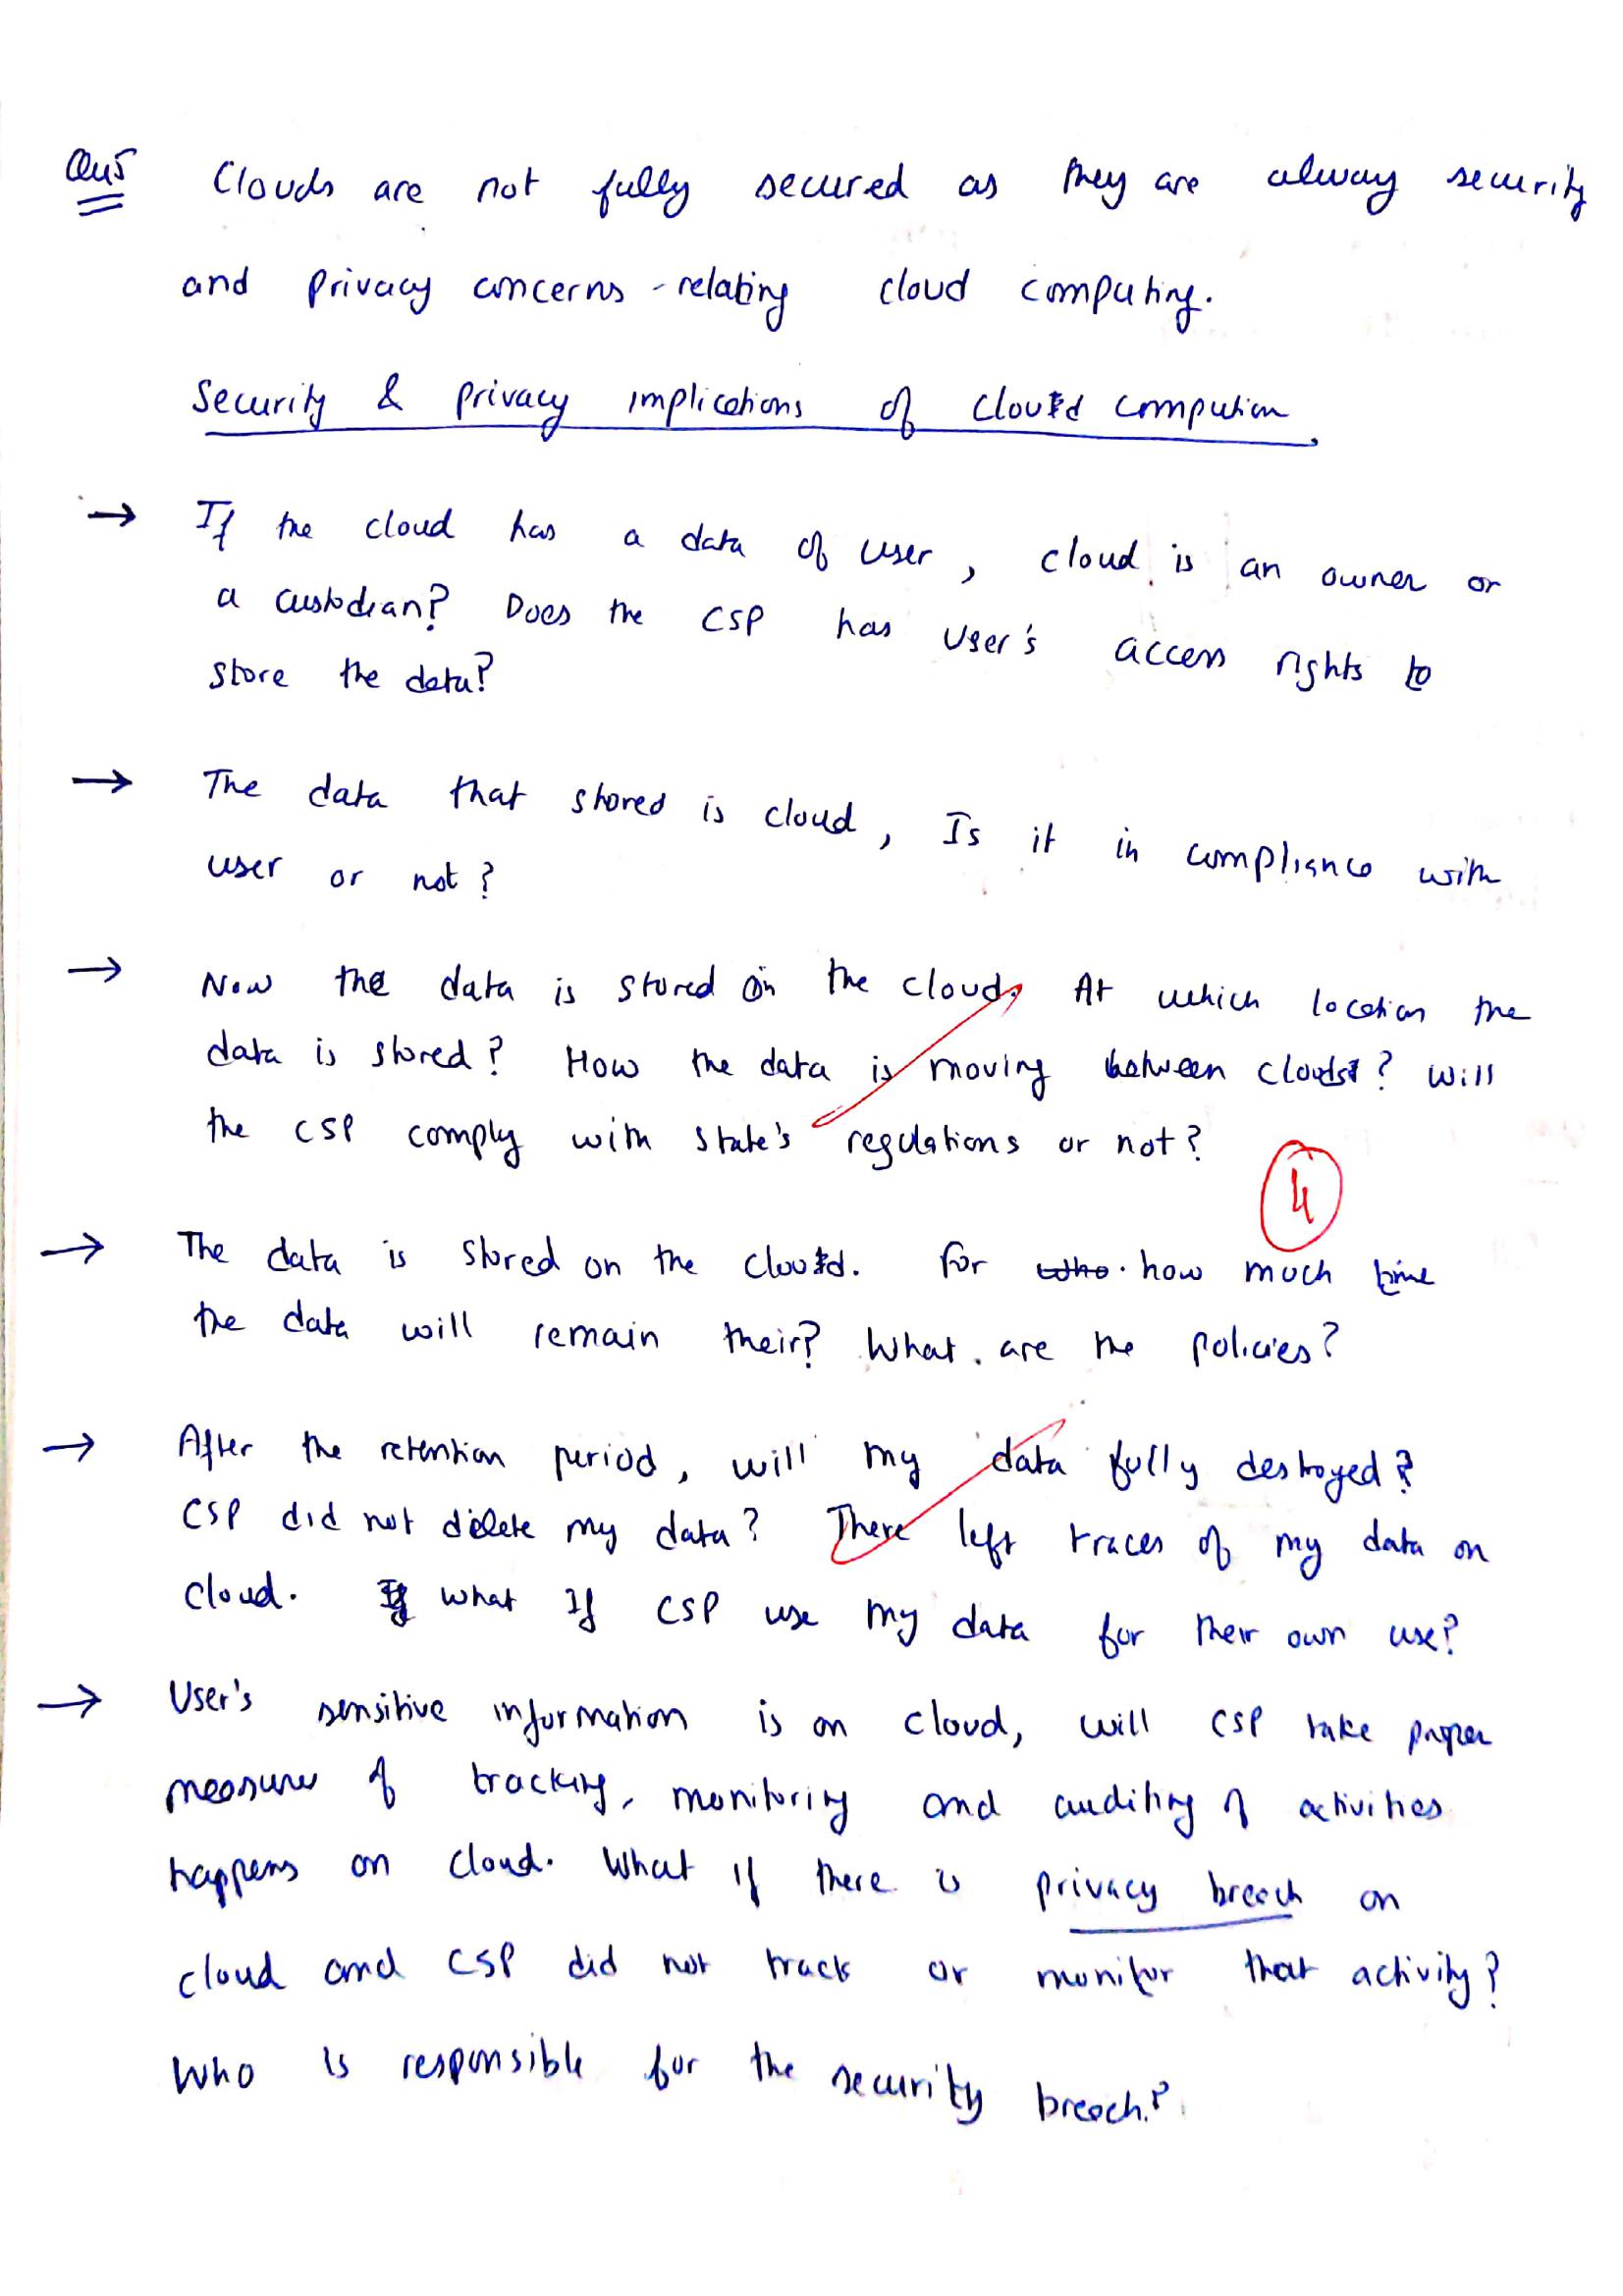 Qu5 Clouds are not fully secured as they are alway security
and privacy concerns - relating cloud computing.
Security & privacy implications of cloud compution
→ If the cloud has a data of user, cloud is an owner or
a custodian? Does the CSP has User's access rights to
store the data?
→ The data that stored is cloud, Is it in compliance with
user or not?
→ Now the data is stored on the cloud. At which location the
data is stored? How the data is moving between clouds? Will
the CSP comply with state's regulations or not?
4
→ The data is stored on the cloud. For who. how much time
the data will remain their? What are the policies?
→ After the retention period, will my data fully destroyed?
CSP did not delete my data? There left traces of my data on
cloud. If what If CSP use my data for their own use?
→ User's sensitive information is on cloud, will CSP take proper
measures of tracking, monitoring and auditing of activities
happens on cloud. What if there is privacy breach on
cloud and CSP did not track or monitor that activity?
Who is responsible for the security breach?